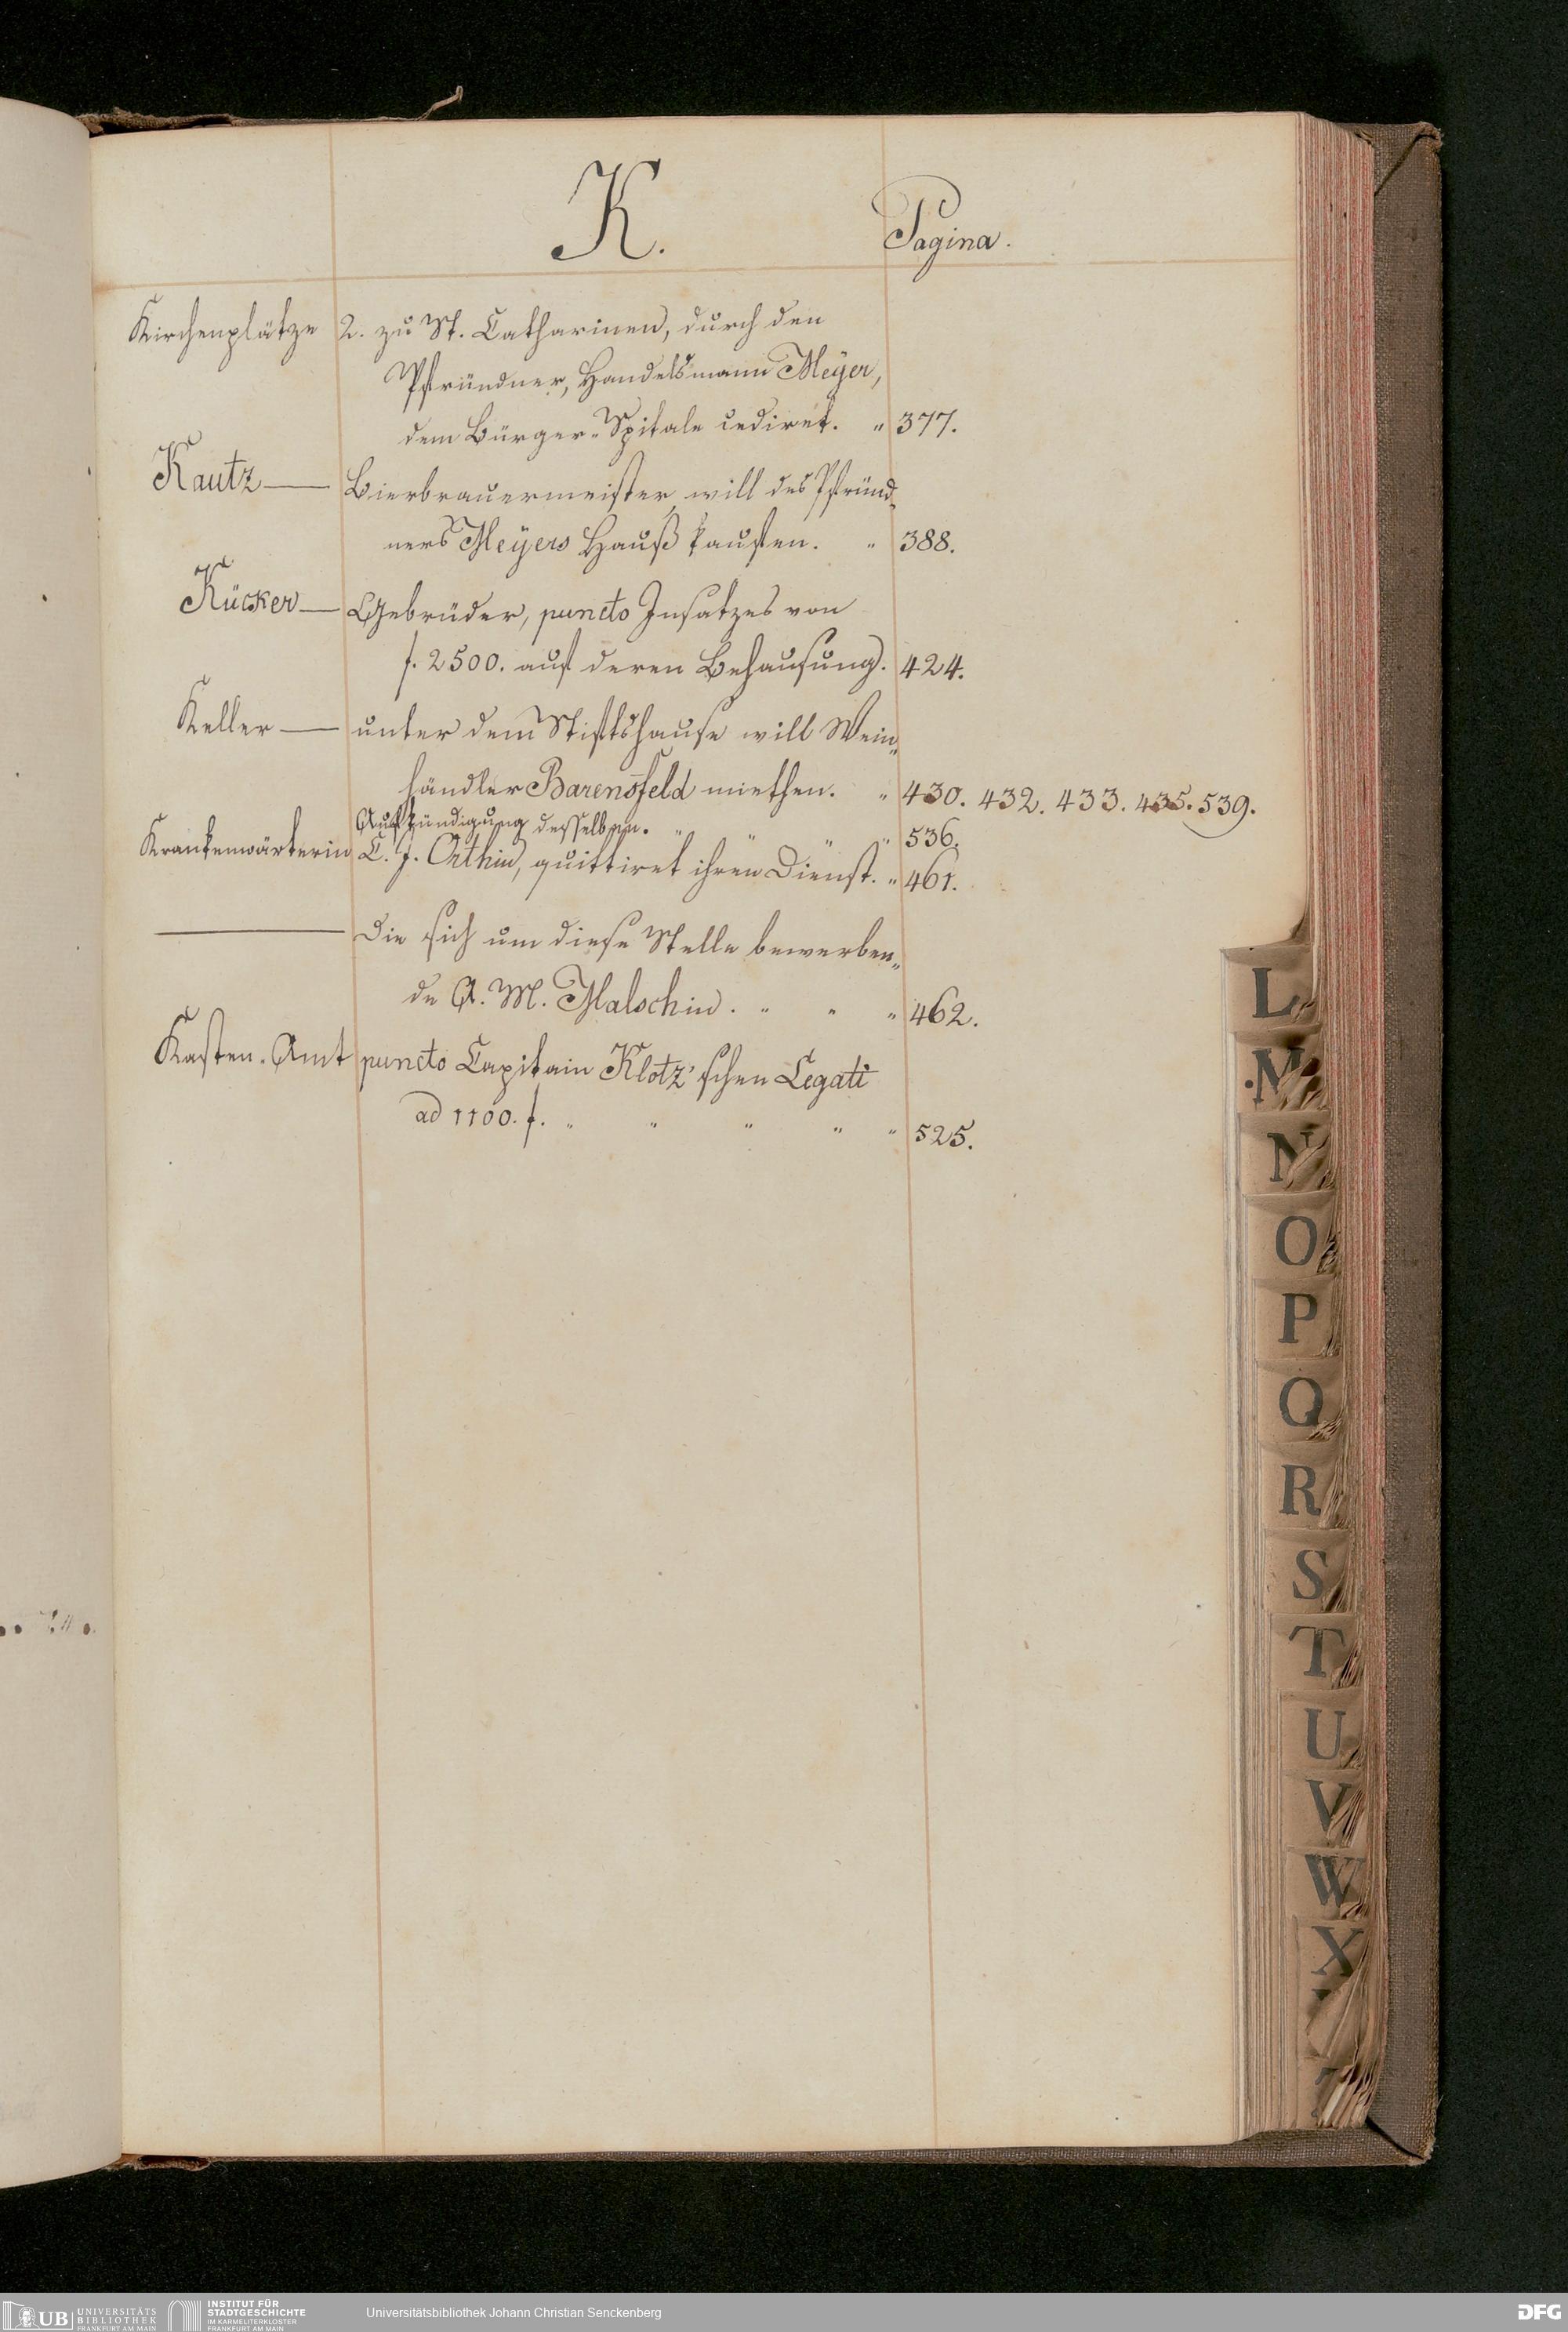 K.
Pagina.
Kirchenplätze 2. zu St. Catharinen, durch den
Pfründner, Handelsmann Meÿer,
dem Bürger-Spitale cediret. " 377.
Kautz — Bierbrauermeister will des Pfründ„
ners Meÿers Hauß kaufen. " 388.
Kücker — Gebrüder, puncto Insatzes von
f. 2500. auf deren Behausung. 424.
Keller — unter dem Stiftshause will Wein„
händler Barensfeld miethen. " 430. 432. 433. 435. 539.
Aufkündigung desselben. " " " " 536.
Krankenwärterin C. J. Orthin, quittiret ihren Dienst. " 461.
— Die sich um diese Stelle bewerben„
de A. M. Malschin. " " " 462.
Kasten-Amt puncto Capitain Klotz'schen Legati
ad 1100. f. " " " " " 525.
L
M
N
O
P
Q
R
S
T
U
V
W
X
UB UNIVERSITÄTS
BIBLIOTHEK
FRANKFURT AM MAIN
INSTITUT FÜR
STADTGESCHICHTE
IM KARMELITERKLOSTER
FRANKFURT AM MAIN
Universitätsbibliothek Johann Christian Senckenberg
DFG